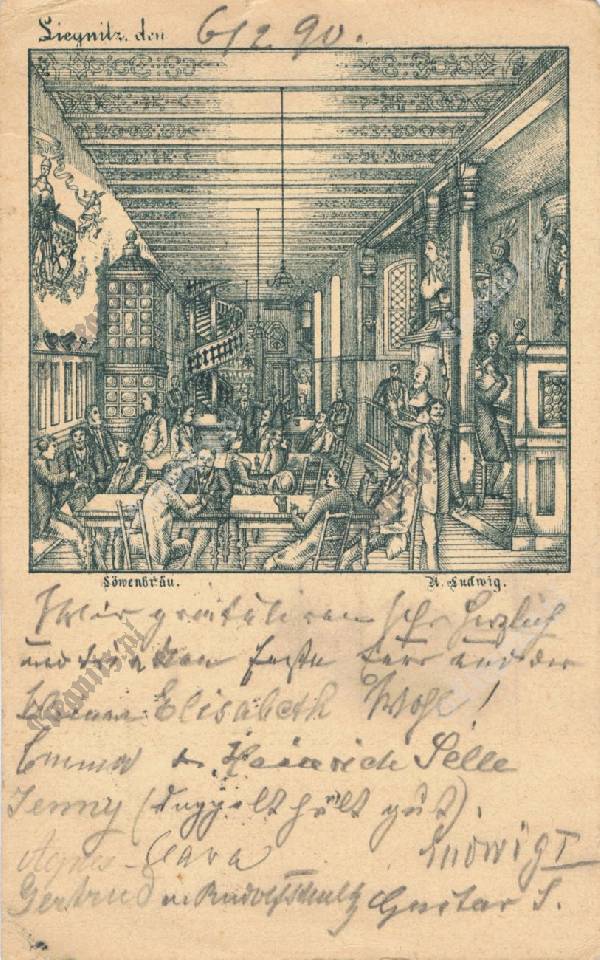 Liegnitz, den 6/2 90.
Löwenbräu. A. Ludwig.
Wir gratuliren sehr herzlich
und trinken feste Eure und der
kleinen Elisabeth Wohl!
Emma u. Heinrich Selle
Jenny (doppelt hält gut).
Agnes - Clara Ludwig I
Gertrud u. Rudolf Schultz Gustav S.